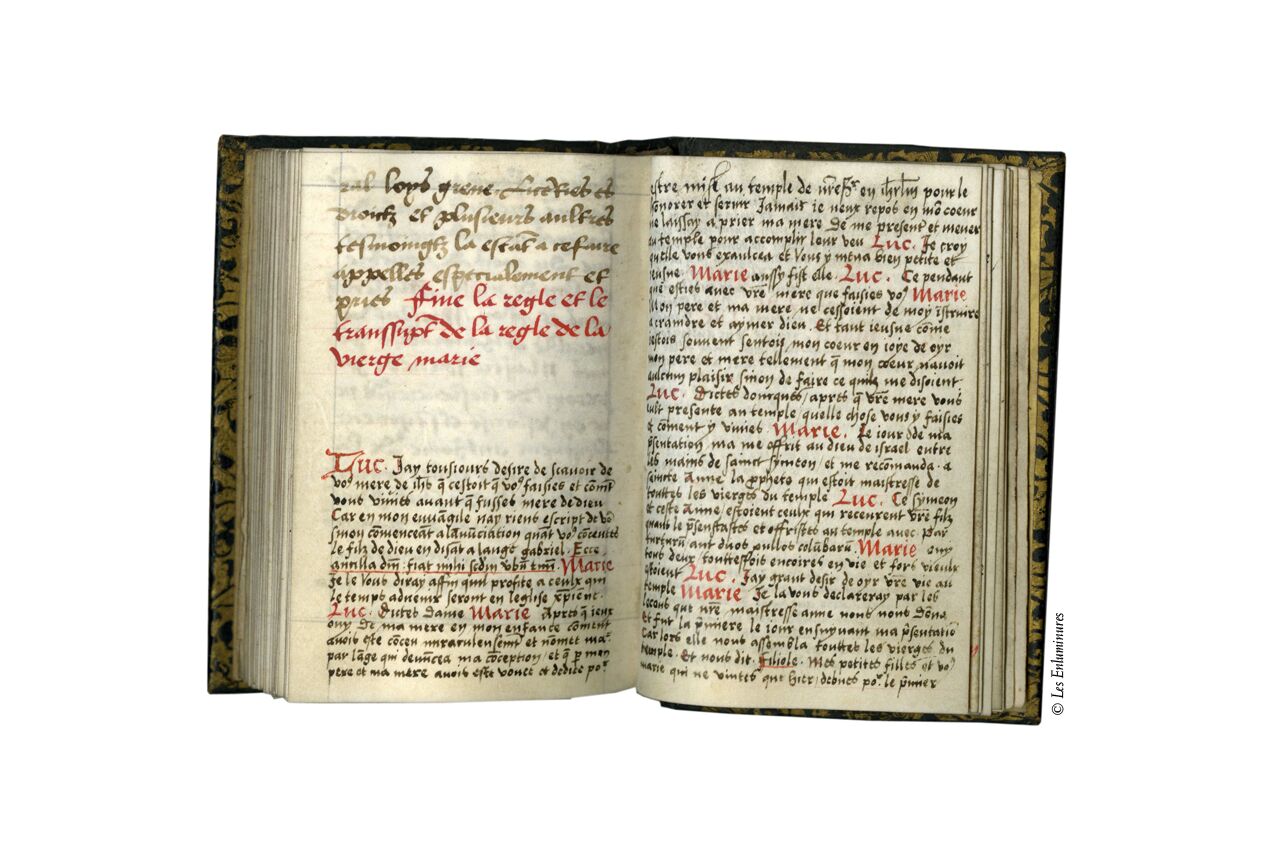 ral loys grene. Licecies es
droictz et plusieurs aultres
tesmoingtz la estãt a ce faire
appelles especialement et
pries Fine la regle et le
transsupt de la regle de la
vierge marie
Luc. Jay tousiours desire de scavoir de
vo⁹ mere de ihs q̃ cestoit q̃ vo⁹ faisies et com̃t
vous vinies avant q̃ fusses mere de dieu
Car en mon euuãgile nay riens escript de vo⁹
sinon cõmenceãt a lanũciation quãt vo⁹ conceutes
le filz de dieu en disãt a lange gabriel. Ecce
ancilla dñi: fiat mihi scdm vbũ tuũ. Marie
Je le vous diray affin quil profite a ceulx qui
le temps advenir seront en leglise xp̃ient.
Luc. Dictes dame Marie Apres q̃ ieux
ouy de ma mere en mon enfance cõment
avois este cõceu miraculeusemẽt et nõmet ma⁻
par lãge qui denũcea ma cõception, et q̃ p mon
pere et ma mere avois este vouet et dedice po⁹
estre mise au temple de en ihrl̃m pour le
honorer et seruir Jamais ie neux repos en mõ coeur
ne laissay a prier ma mere de me present et mener
au temple pour accomplir leur veu Luc. Je croy
quelle vous exaulcea et vous y mena bien petite et
ieusne. Marie aussy fist elle. Luc. Ce pendant
que esties avec vr̃e mere que faisies vo⁹ Marie
Mon pere et ma mere ne cessoient de moy ĩstruire
a craindre et aymer dieu. Et tant ieusne cõme
iestois souvent sentois mon coeur en ioye de oyr
mon pere et mere tellement q̃ mon coeur navoit
aulcun plaisir sinon de faire ce quilz me disoient
Luc. Dictes doncques apres q̃ vr̃e mere vous
eult presente au temple quelle chose vous y faisies
et cõment y vinies Marie. Le iour de ma
p̃sentation ma me offrit au dieu de israel entre
les mains de sainct symeon, et me recõmanda. a
saincte Anne la prophete qui estoit maistresse de
touttes les vierges du temple Luc. Ce symeon
et ceste Anne, estoient ceulx qui receurent vr̃e filz
quant le p̃sentastes et offristes au temple avec Par
turturũ ant duos pullos colũbarũ. Marie ouy
tous deux, touttesfois encoires en vie et fors vieulx
estoient Luc. Jay grant desir de oyr vr̃e vie au
temple Marie Je la vous declareray par les
lecons que nr̃e maistresse anne nous nous dõna
Et fut la p̃miere le iour ensuyuant ma p̃sentatiõ
Car lors elle nous assembla touttes les vierges du
temple. Et nous dit. Filiole. Mes petites filles et vo⁹
marie qui ne vintes que hier, debues po⁹ le p̃mier
© Les Enluminures